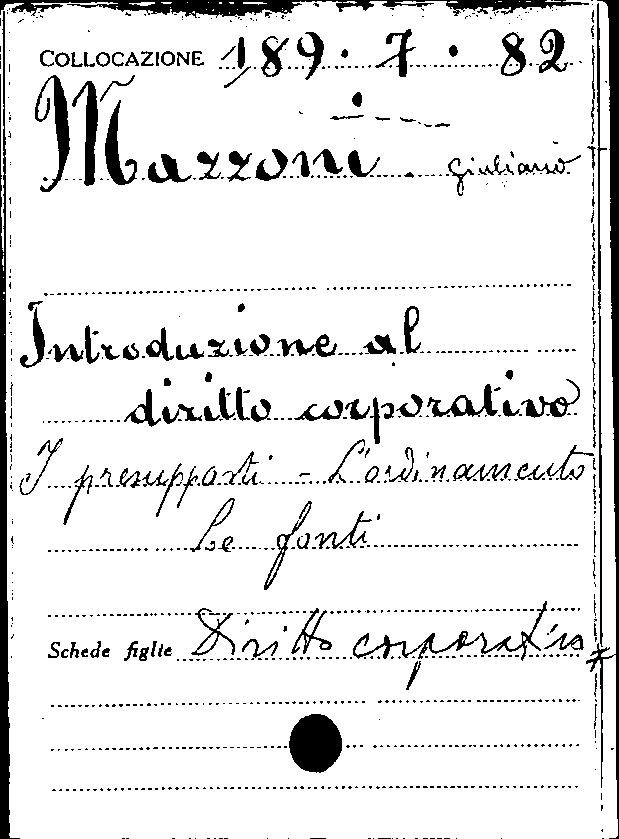 COLLOCAZIONE 189 · 7 · 82
Mazzoni. Giuliano
Introduzione al
diritto corporativo
I presupposti - L'ordinamento
Le fonti
Schede figlie Diritto corporativo